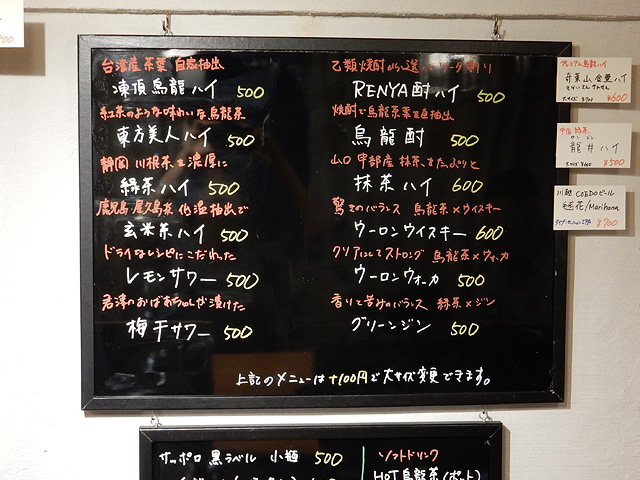 台湾産茶葉 自家抽出
凍頂烏龍ハイ 500
紅茶のような味わいな烏龍茶
東方美人ハイ 500
静岡 川根茶を濃厚に
緑茶ハイ 500
鹿児島 屋久島茶 低温抽出で
玄米茶ハイ 500
ドライなレシピにこだわった
レモンサワー 500
君津のおばあちゃんが漬けた
梅干サワー 500
乙類焼酎から選 ソーダ割り
RENYA酎ハイ 500
焼酎で烏龍茶葉を直抽出
烏龍酎 500
山口 宇部産 抹茶をたっぷりと
抹茶ハイ 600
驚きのバランス 烏龍茶×ウイスキー
ウーロンウイスキー 600
クリアにしてストロング 烏龍茶×ウォカ
ウーロンウォカ 500
香りと苦味のバランス 緑茶×ジン
グリーンジン 500
上記のメニューは+100円で大サイズ変更できます。
プレミアム烏龍ハイ
奇莱山 金萱ハイ
大サイズ ¥700 ¥600
中国緑茶
龍井ハイ
大サイズ ¥600 ¥500
川越 COEDOビール
毬花/Marihana
¥700
サッポロ 黒ラベル 小瓶 500
ソフトドリンク
HOT烏龍茶(ポット)